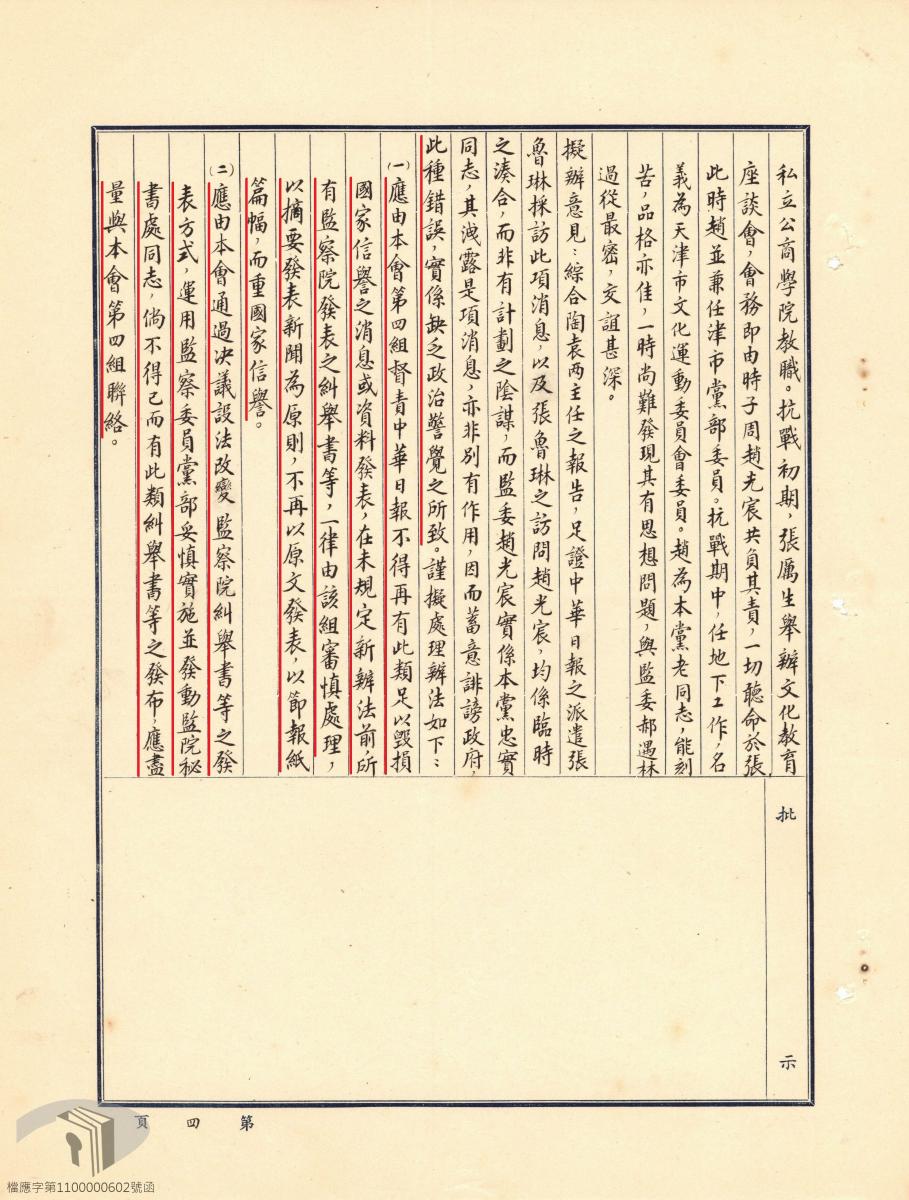 私立公商學院教職。抗戰初期，張厲生舉辦文化教育
座談會，會務即由時子周趙光宸共負其責，一切聽命於張
此時趙並兼任津市黨部委員。抗戰期中，任地下工作，名
義為天津市文化運動委員會委員。趙為本黨老同志，能刻
苦，品格亦佳，一時尚難發現其有思想問題，與監委郝遇林
過從最密，交誼甚深。
擬辦意見：綜合陶袁兩主任之報告，足證中華日報之派遣張
魯琳採訪此項消息，以及張魯琳之訪問趙光宸，均係臨時
之湊合，而非有計劃之陰謀，而監委趙光宸實係本黨忠實
同志，其洩露是項消息，亦非別有作用，因而蓄意誹謗政府，
此種錯誤，實係缺乏政治警覺之所致。謹擬處理辦法如下：
(一)應由本會第四組督責中華日報不得再有此類足以毀損
國家信譽之消息或資料發表，在未規定新辦法前，所
有監察院發表之糾舉書等，一律由該組審慎處理，
以摘要發表新聞為原則，不再以原文發表，以節報紙
篇幅，而重國家信譽。
(二)應由本會通過决議設法改變監察院糾舉書等之發
表方式，運用監察委員黨部妥慎實施並發動監院秘
書處同志，倘不得已而有此類糾舉書等之發布，應盡
量與本會第四組聯絡。
批示
第四頁
檔應字第1100000602號函